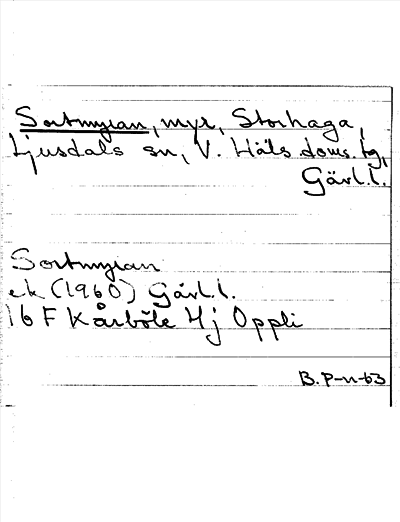 Sortmyran, myr, Storhaga,
Ljusdals sn, V. Häls. doms. tg,
Gävl.l.
Sortmyran
ek (1960) Gävl.l.
16 F Kårböle Hj Oppli
B. P-n-63